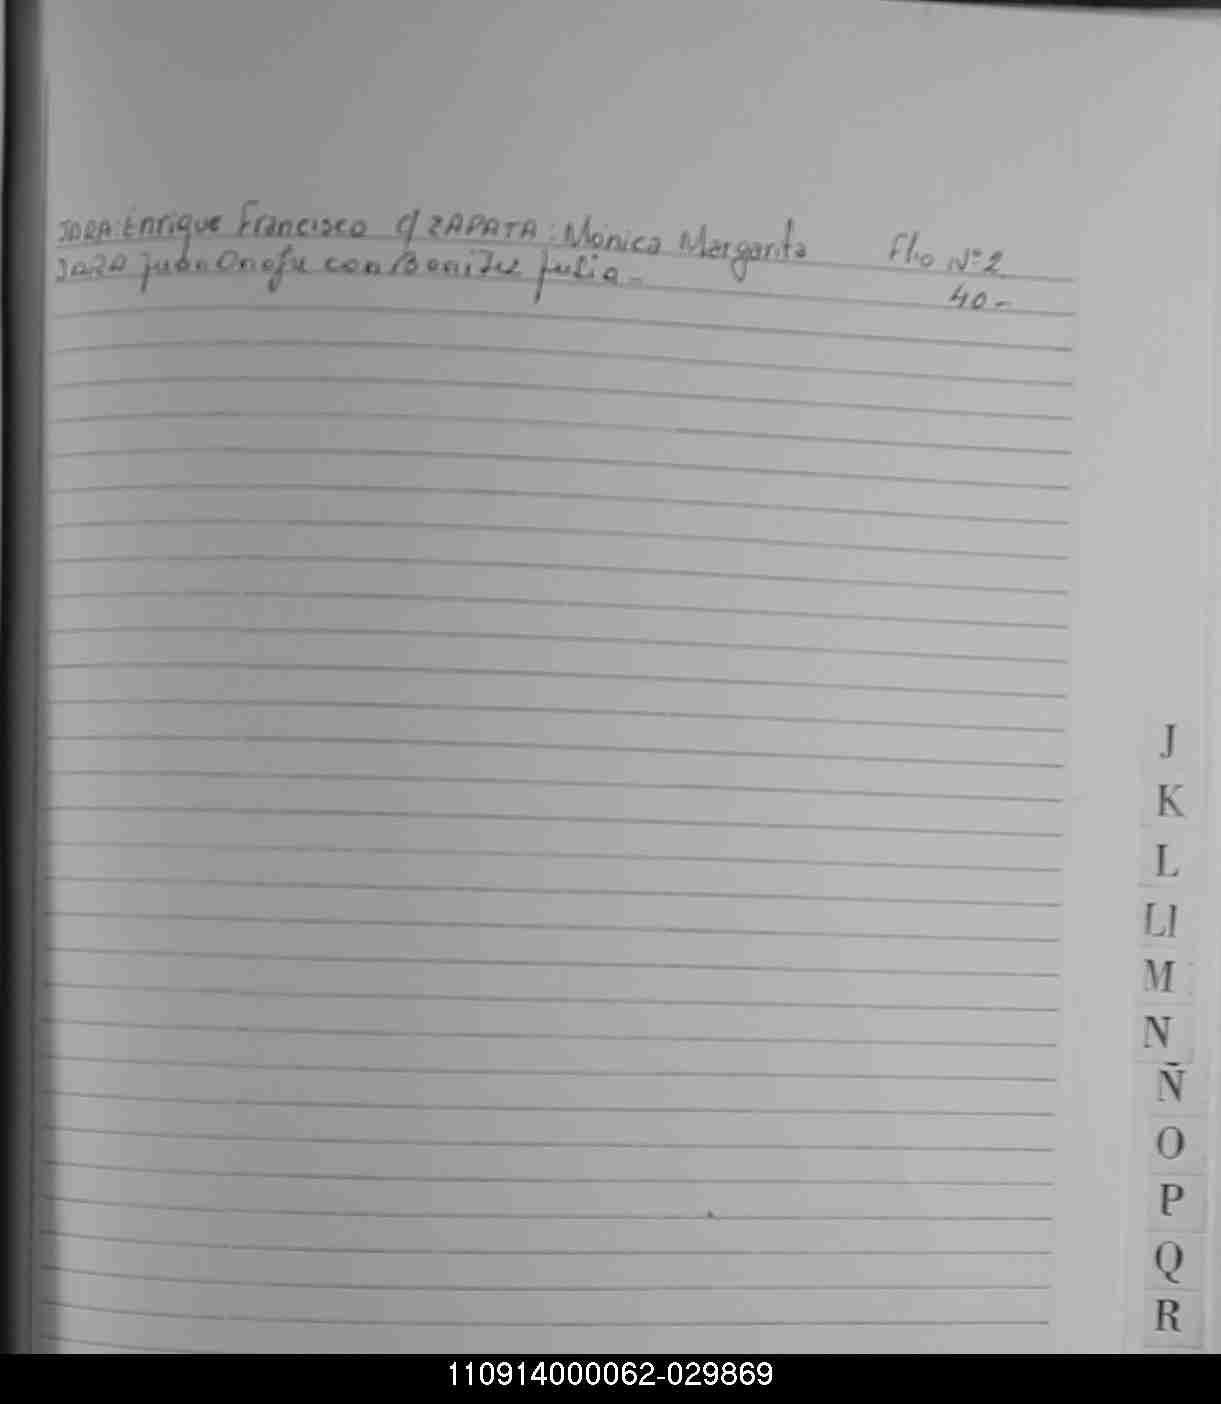 JARA: Enrique Francisco c/ ZAPATA: Mónica Margarita Flio Nº 2
JARA Juan Onofre con Benitez Julia.- 40-
J
K
L
Ll
M
N
Ñ
O
P
Q
R
110914000062-029869